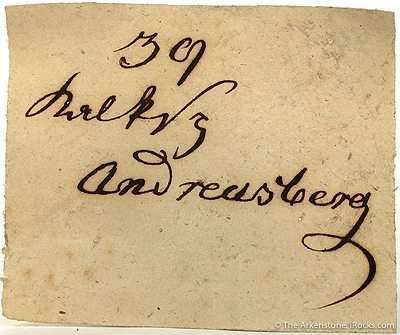 39
Andreasberg
© The Arkenstone, iRocks.com